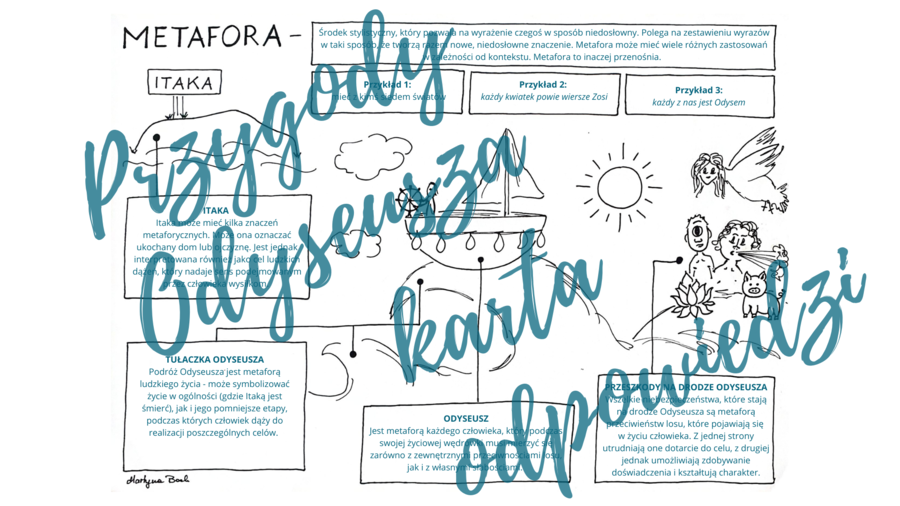 METAFORA -
Środek stylistyczny, który pozwala na wyrażenie czegoś w sposób niedosłowny. Polega na zestawieniu wyrazów
w taki sposób, że tworzą razem nowe, niedosłowne znaczenie. Metafora może mieć wiele różnych zastosowań
w zależności od kontekstu. Metafora to inaczej przenośnia.
ITAKA
Przykład 1:
mieć z kimś siedem światów
Przykład 2:
każdy kwiatek powie wiersze Zosi
Przykład 3:
każdy z nas jest Odysem
Przygody
Odyseusza
karta
odpowiedzi
ITAKA
Itaka może mieć kilka znaczeń
metaforycznych. Może ona oznaczać
ukochany dom lub ojczyznę. Jest jednak
interpretowana również jako cel ludzkich
dążeń, który nadaje sens podejmowanym
przez człowieka wysiłkom.
TUŁACZKA ODYSEUSZA
Podróż Odyseusza jest metaforą
ludzkiego życia - może symbolizować
życie w ogólności (gdzie Itaką jest
śmierć), jak i jego pomniejsze etapy,
podczas których człowiek dąży do
realizacji poszczególnych celów.
ODYSEUSZ
Jest metaforą każdego człowieka, który podczas
swojej życiowej wędrówki musi mierzyć się
zarówno z zewnętrznymi przeciwnościami losu,
jak i z własnymi słabościami.
PRZESZKODY NA DRODZE ODYSEUSZA
Wszelkie niebezpieczeństwa, które stają
na drodze Odyseusza są metaforą
przeciwieństw losu, które pojawiają się
w życiu człowieka. Z jednej strony
utrudniają one dotarcie do celu, z drugiej
jednak umożliwiają zdobywanie
doświadczenia i kształtują charakter.
Martyna